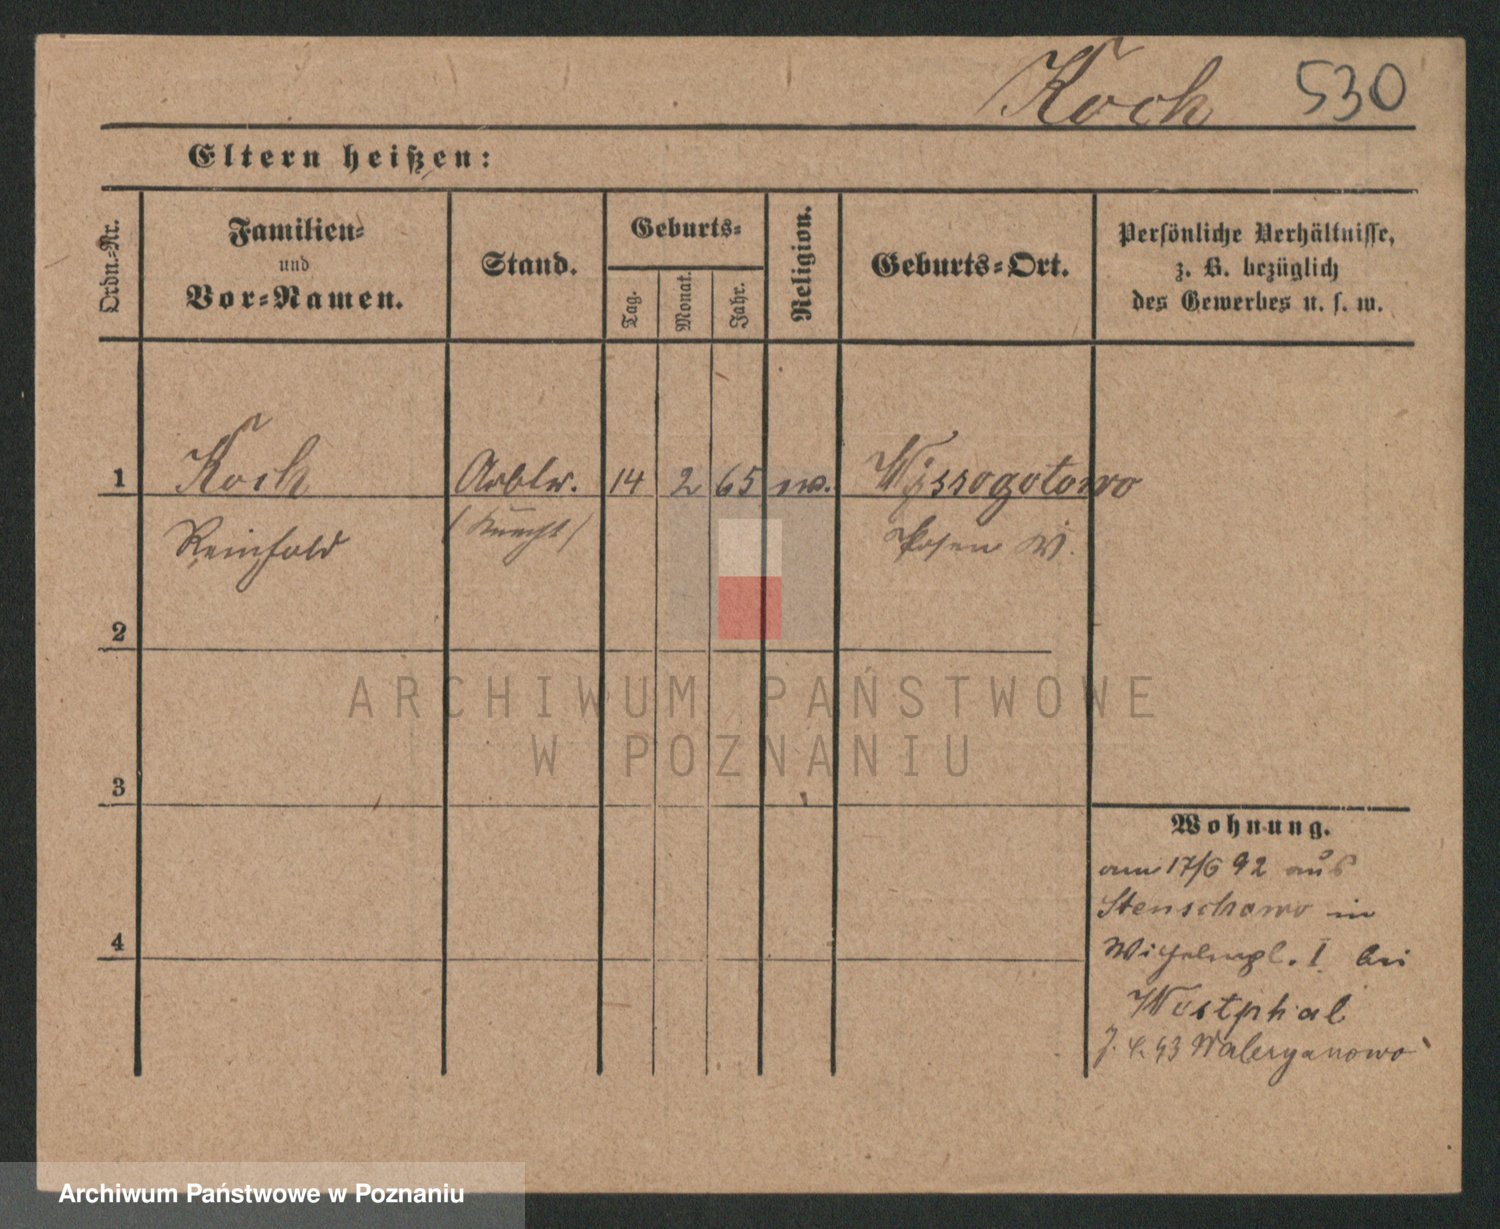 Koch 530
Eltern heißen:
Ordn.-Nr.
Familien-
und
Vor-Namen.
Stand.
Geburts-
Tag.
Monat.
Jahr.
Religion.
Geburts-Ort.
Persönliche Verhältnisse,
z. B. bezüglich
des Gewerbes u. s. w.
1 Koch 14 2 65 ev. Wyssogotowo
Reinhold (Knecht) Posen W.
2
3
4
Wohnung.
am 17/6 92 aus
Stenschewo in
Wilhelmpl. I bei
Westphal
93
ARCHIWUM PAŃSTWOWE
W POZNANIU
Archiwum Państwowe w Poznaniu